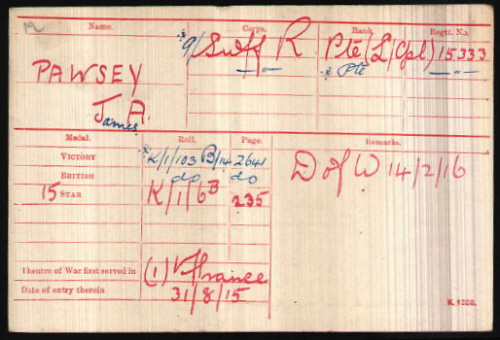 Name. Corps. Rank Regtl. No.
*9/Suff R Pte (L/Cpl) 15333
PAWSEY —"— * Pte —"—
J. A.
James
Medal. Roll. Page. Remarks.
VICTORY *K/1/103 B/14 2641 D of W 14/2/16
BRITISH do do
15 STAR K/1/6B 235
Theatre of War first served in (1) France
Date of entry therein 31/8/15
K. 1380.